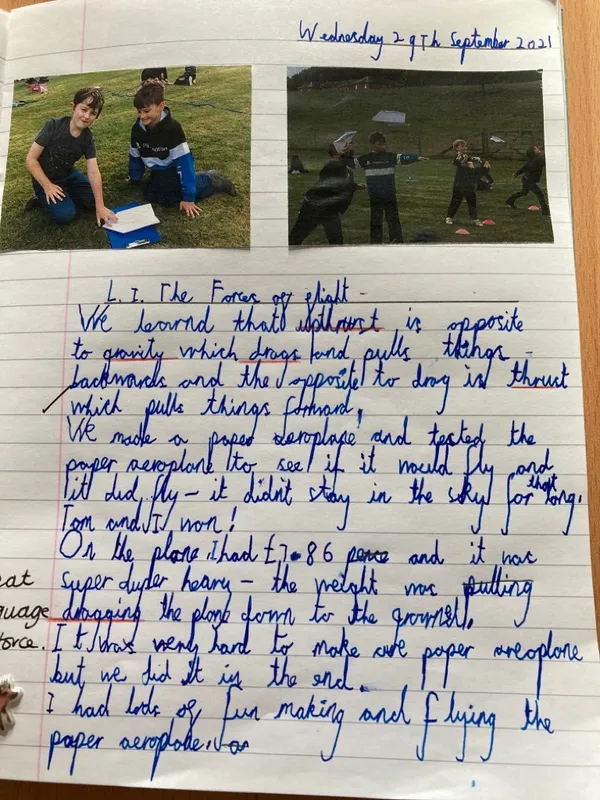 Wednesday 29Th September 2021
L. I. The Forces of flight
We learnd that upthrust is opposite
to gravity which drags and pulls things
backwards and the opposite to drag is thrust
which pulls things forward.
We made a paper aeroplane and tested the
paper aeroplane to see if it would fly and
it did fly - it didn't stay in the sky for that long.
Tom and I won!
On the plane I had £7.86 pence and it was
super duper heavy - the weight was pulling
dragging the plane down to the ground.
It was very hard to make are paper areoplane
but we did it in the end.
I had lods of fun making and flying the
paper aeroplane.
eat
guage
force.